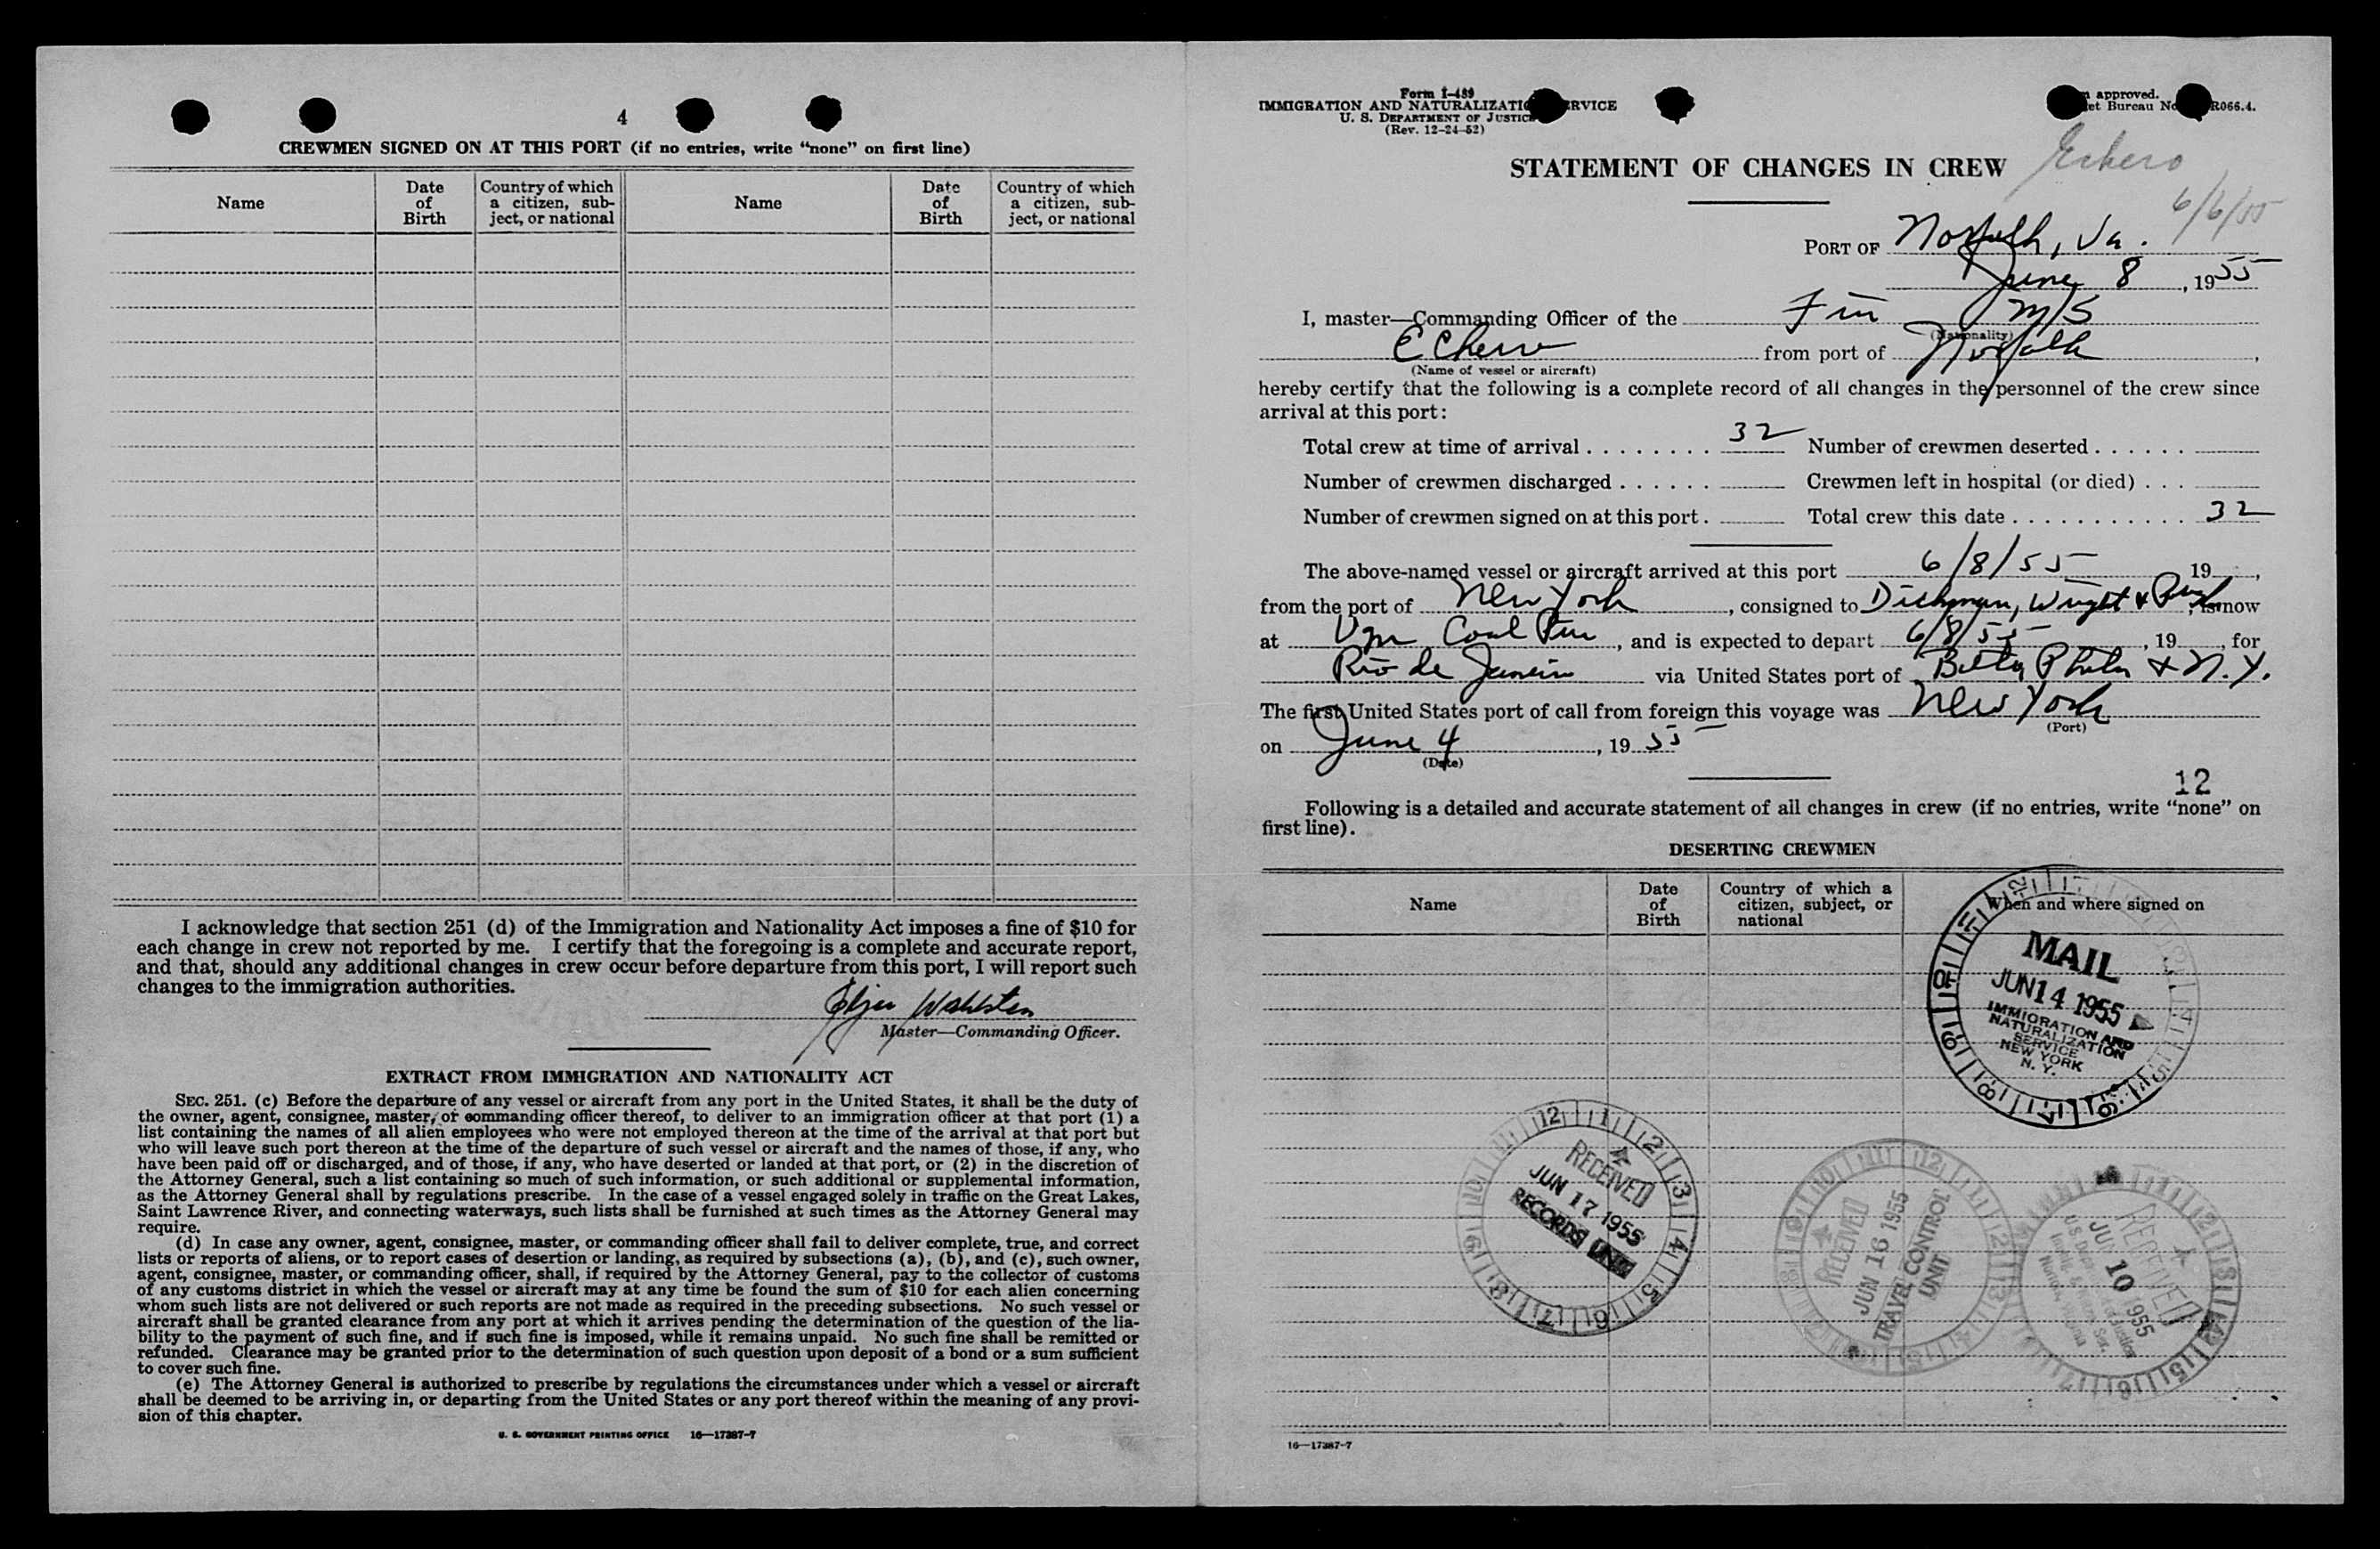 4
CREWMEN SIGNED ON AT THIS PORT (if no entries, write “none” on first line)
Name
Date of Birth
Country of which a citizen, subject, or national
Name
Date of Birth
Country of which a citizen, subject, or national
I acknowledge that section 251 (d) of the Immigration and Nationality Act imposes a fine of $10 for
each change in crew not reported by me. I certify that the foregoing is a complete and accurate report,
and that, should any additional changes in crew occur before departure from this port, I will report such
changes to the immigration authorities.
Master—Commanding Officer.
EXTRACT FROM IMMIGRATION AND NATIONALITY ACT
SEC. 251. (c) Before the departure of any vessel or aircraft from any port in the United States, it shall be the duty of
the owner, agent, consignee, master, or commanding officer thereof, to deliver to an immigration officer at that port (1) a
list containing the names of all alien employees who were not employed thereon at the time of the arrival at that port but
who will leave such port thereon at the time of the departure of such vessel or aircraft and the names of those, if any, who
have been paid off or discharged, and of those, if any, who have deserted or landed at that port, or (2) in the discretion of
the Attorney General, such a list containing so much of such information, or such additional or supplemental information,
as the Attorney General shall by regulations prescribe. In the case of a vessel engaged solely in traffic on the Great Lakes,
Saint Lawrence River, and connecting waterways, such lists shall be furnished at such times as the Attorney General may
require.
(d) In case any owner, agent, consignee, master, or commanding officer shall fail to deliver complete, true, and correct
lists or reports of aliens, or to report cases of desertion or landing, as required by subsections (a), (b), and (c), such owner,
agent, consignee, master, or commanding officer, shall, if required by the Attorney General, pay to the collector of customs
of any customs district in which the vessel or aircraft may at any time be found the sum of $10 for each alien concerning
whom such lists are not delivered or such reports are not made as required in the preceding subsections. No such vessel or
aircraft shall be granted clearance from any port at which it arrives pending the determination of the question of the lia-
bility to the payment of such fine, and if such fine is imposed, while it remains unpaid. No such fine shall be remitted or
refunded. Clearance may be granted prior to the determination of such question upon deposit of a bond or a sum sufficient
to cover such fine.
(e) The Attorney General is authorized to prescribe by regulations the circumstances under which a vessel or aircraft
shall be deemed to be arriving in, or departing from the United States or any port thereof within the meaning of any provi-
sion of this chapter.
U. S. GOVERNMENT PRINTING OFFICE 16—17387-7
Form I-489
IMMIGRATION AND NATURALIZATION SERVICE
U. S. DEPARTMENT OF JUSTICE
(Rev. 12-24-52)
approved.
Bureau No. R066.4.
STATEMENT OF CHANGES IN CREW
Echero
6/6/55
PORT OF Norfolk, Va.
June 8, 1955
I, master—Commanding Officer of the Fin M/S
(Nationality)
Echero from port of Norfolk,
(Name of vessel or aircraft)
hereby certify that the following is a complete record of all changes in the personnel of the crew since
arrival at this port:
Total crew at time of arrival 32 Number of crewmen deserted
Number of crewmen discharged Crewmen left in hospital (or died)
Number of crewmen signed on at this port. Total crew this date 32
The above-named vessel or aircraft arrived at this port 6/8/55 19 ,
from the port of New York, consigned to Dichman, Wright & Pugh, is now
at Vgn Coal Pier, and is expected to depart 6/8/55, 19 , for
Rio de Janeiro via United States port of Balto, Phila & N.Y.
The first United States port of call from foreign this voyage was New York
(Port)
on June 4, 1955
(Date)
12
Following is a detailed and accurate statement of all changes in crew (if no entries, write “none” on
first line).
DESERTING CREWMEN
Name
Date of Birth
Country of which a citizen, subject, or national
When and where signed on
MAIL
JUN 14 1955
IMMIGRATION AND
NATURALIZATION
SERVICE
NEW YORK
N. Y.
RECEIVED
JUN 17 1955
RECORDS UNIT
RECEIVED
JUN 16 1955
TRAVEL CONTROL
UNIT
RECEIVED
JUN 10 1955
16—17387-7